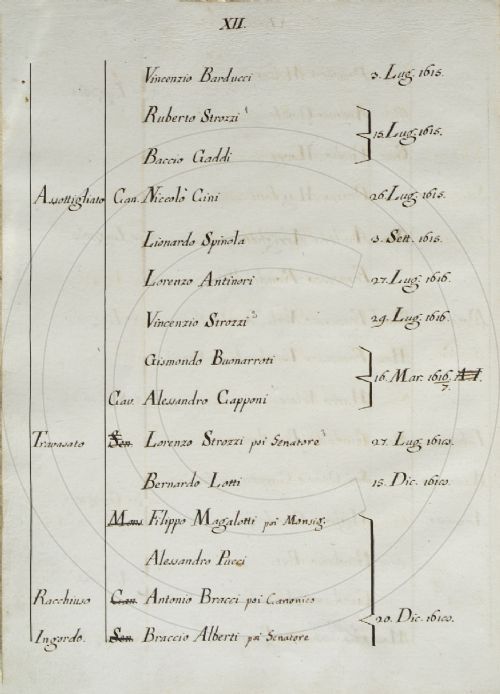 XII.
Vincenzio Barducci 3. Lug. 1615.
Ruberto Strozzi
15. Lug. 1615.
Baccio Gaddi
Assottigliato Can. Niccolò Cini 26. Lug. 1615.
Lionardo Spinola 3. Sett. 1615.
Lorenzo Antinori 27. Lug. 1616.
Vincenzio Strozzi 3 29. Lug. 1616.
Gismondo Buonarroti
16. Mar. 1616.
7.
Cav. Alessandro Capponi
Travasato Sen. Lorenzo Strozzi poi Senatore 3 27. Lug.
Bernardo Lotti 15. Dic.
Mons. Filippo Magalotti poi Monsig.
Alessandro Pucci
Racchiuso Can. Antonio Bracci poi Canonico
20. Dic.
Ingordo. Sen. Braccio Alberti poi Senatore